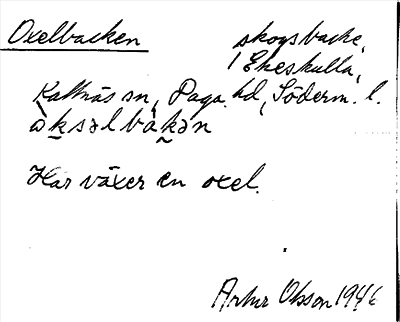 Oxelbacken
skogsbacke,
i Ekeskulla,
Kattnäs sn, Daga hd, Söderm. l.
òksəlbàkən
Här växer en oxel.
Artur Olsson 1946